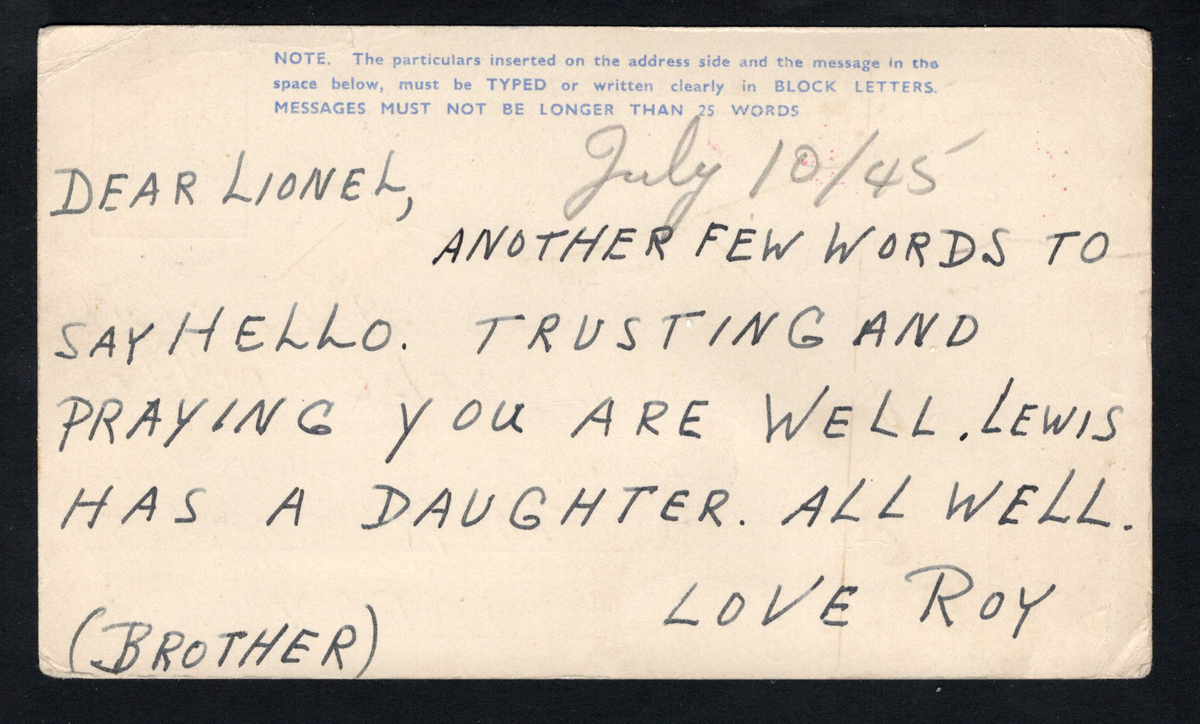 NOTE. The particulars inserted on the address side and the message in the
space below, must be TYPED or written clearly in BLOCK LETTERS.
MESSAGES MUST NOT BE LONGER THAN 25 WORDS
July 10/45
DEAR LIONEL,
ANOTHER FEW WORDS TO
SAY HELLO. TRUSTING AND
PRAYING YOU ARE WELL. LEWIS
HAS A DAUGHTER. ALL WELL.
LOVE ROY
(BROTHER)